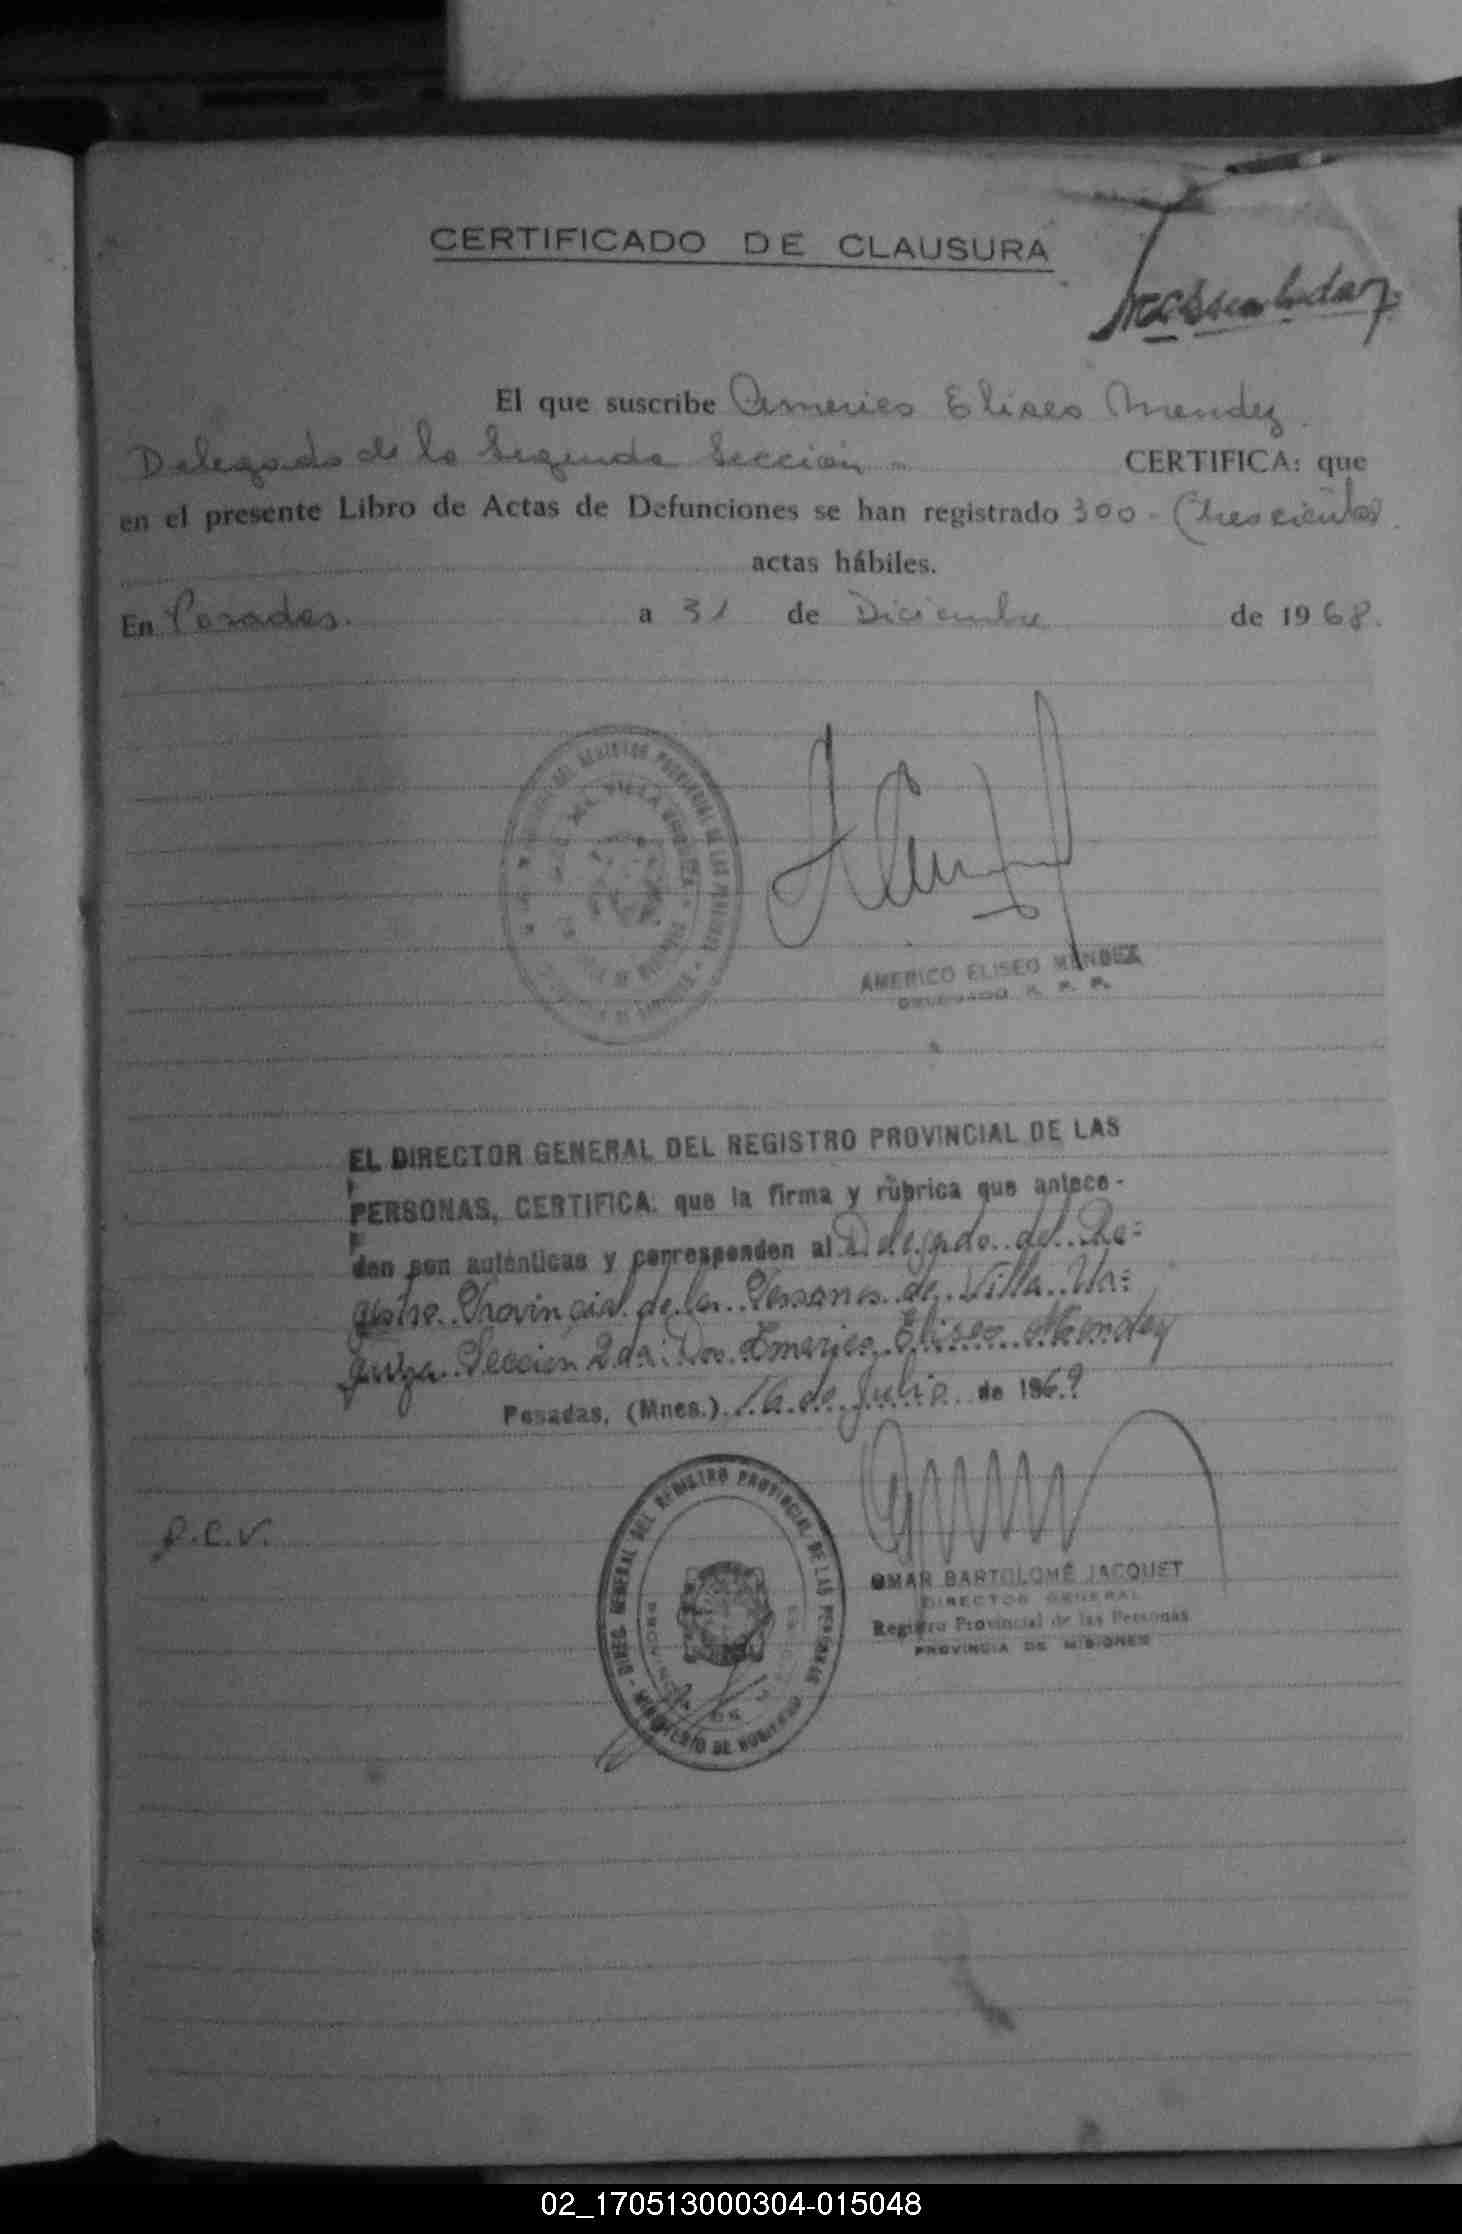 CERTIFICADO DE CLAUSURA
El que suscribe Americo Eliseo Mendez.
Delegado de la Segunda Sección CERTIFICA: que
en el presente Libro de Actas de Defunciones se han registrado 300 - (trescientas)
actas hábiles.
En Posadas. a 31 de Diciembre de 1968.
REGISTRO PROVINCIAL DE LAS PERSONAS
VILLA URQUIZA
AMERICO ELISEO MENDEZ
DELEGADO R. P. P.
EL DIRECTOR GENERAL DEL REGISTRO PROVINCIAL DE LAS
PERSONAS, CERTIFICA: que la firma y rúbrica que antece-
den son auténticas y corresponden al Delegado del Re=
gistro Provincial de las Personas de Villa Ur=
quiza Sección 2da. Don Americo Eliseo Mendez
Posadas, (Mnes.) 16 de Julio de 1969
DIREC. GENERAL DEL REGISTRO PROVINCIAL DE LAS PERSONAS - MINISTERIO DE GOBIERNO
PROVINCIA DE MISIONES
OMAR BARTOLOMÉ JACQUET
DIRECTOR GENERAL
Registro Provincial de las Personas
PROVINCIA DE MISIONES
R.C.V.
02_170513000304-015048